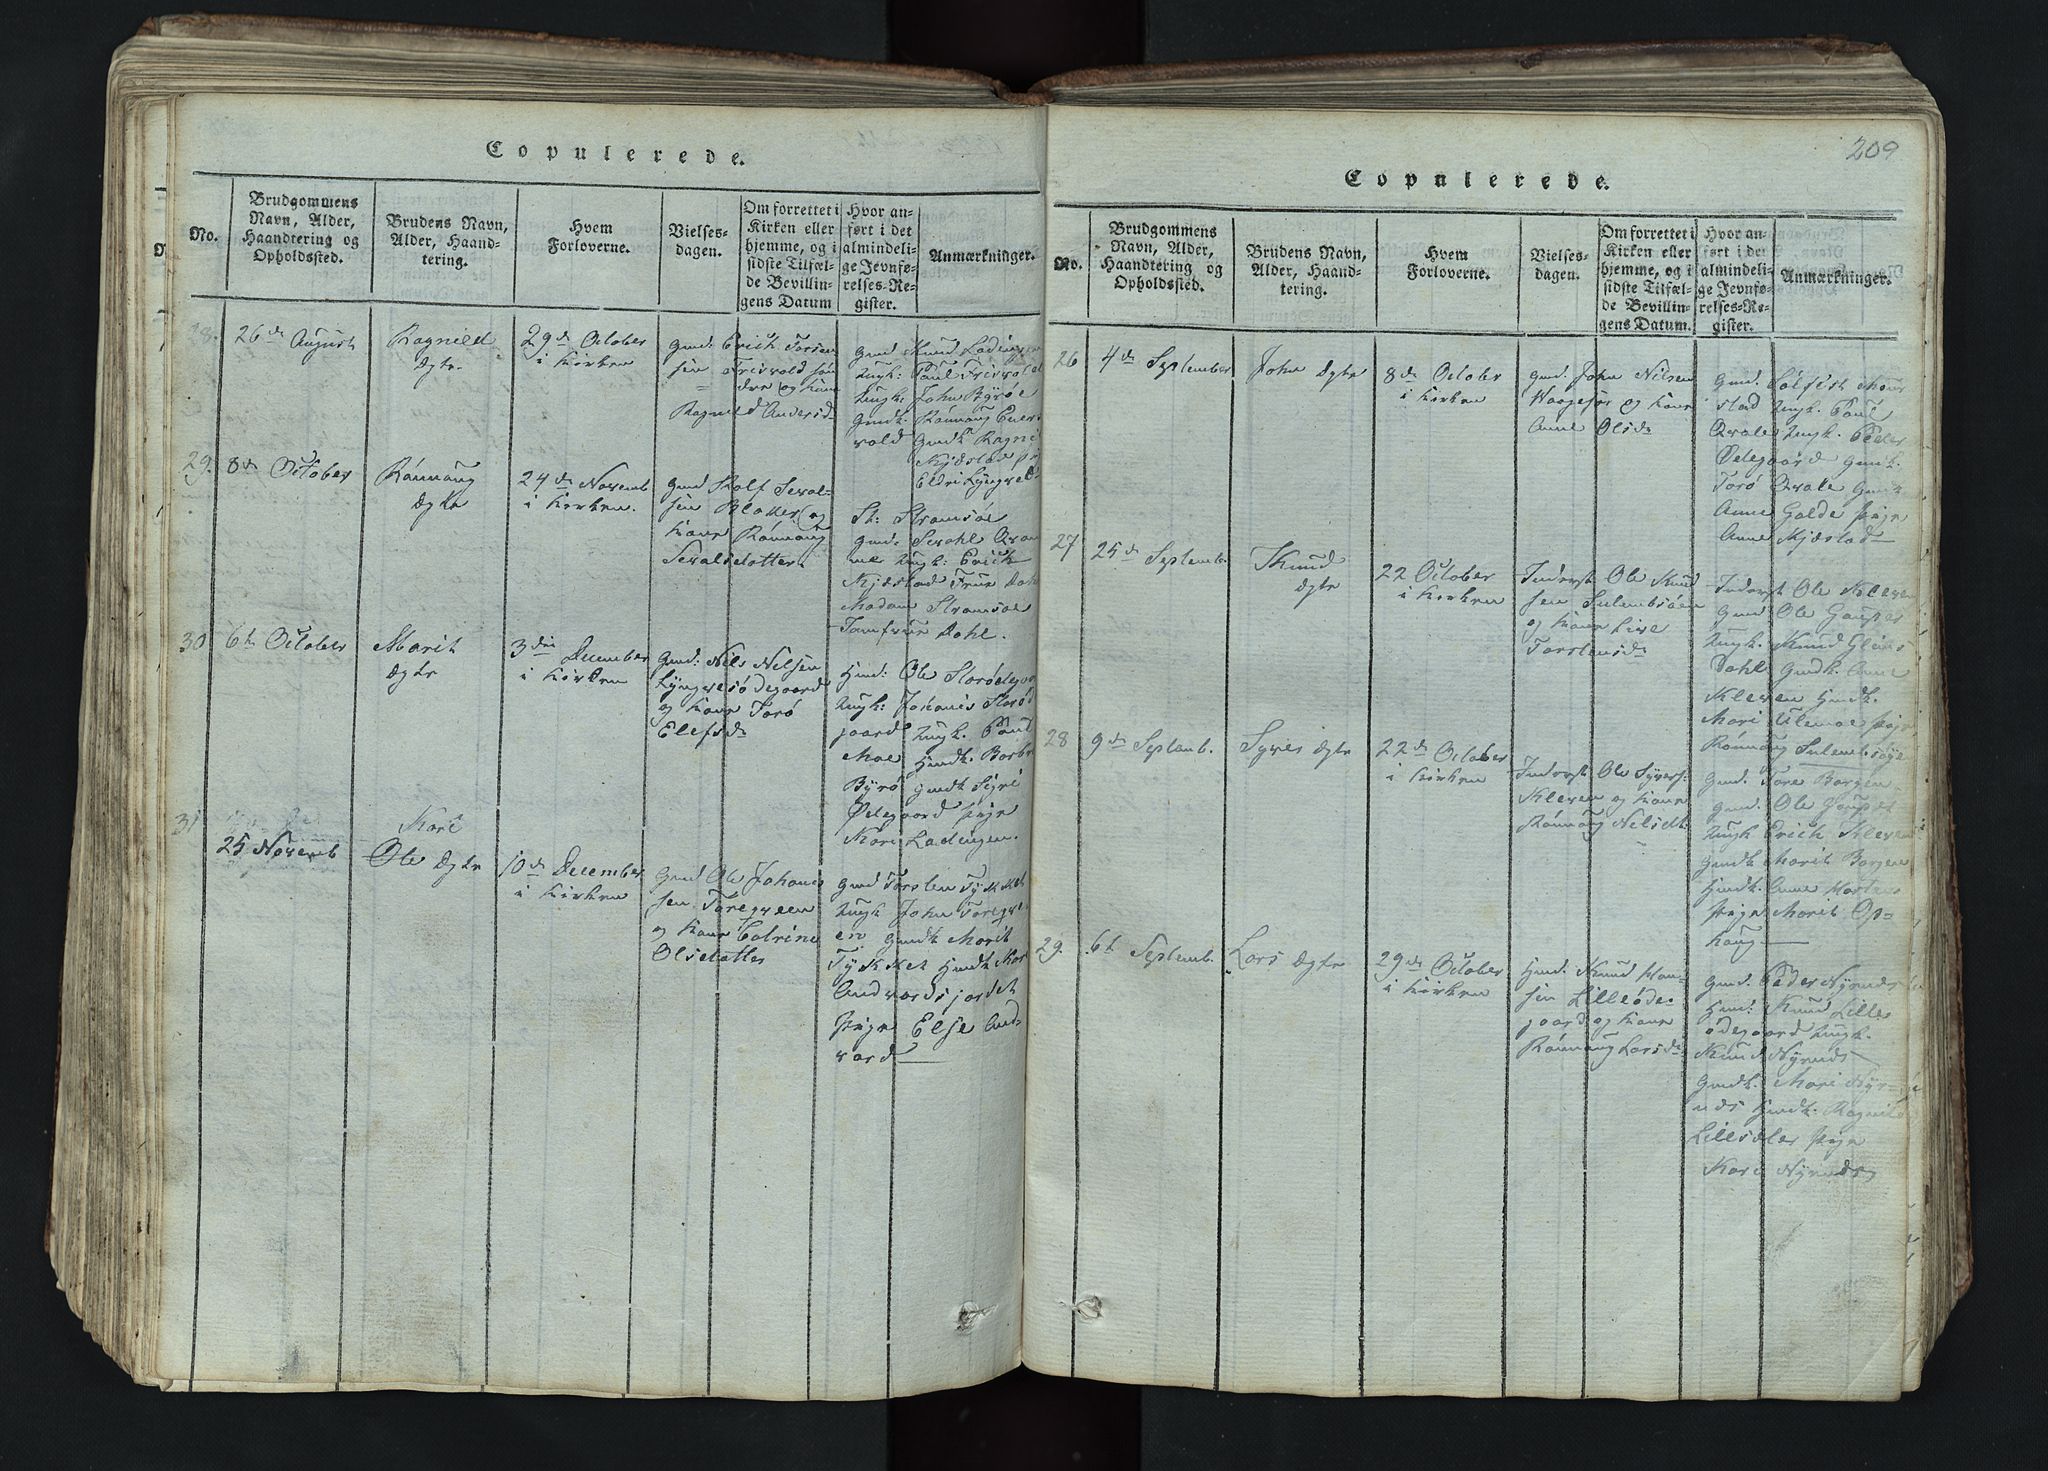 Copulerede.
No.
Brudgommens
Navn, Alder,
Haandtering og
Opholdssted.
Brudens Navn,
Alder, Haand-
tering.
Hvem
Forloverne.
Vielses-
dagen.
Om forrettet i
Kirken eller
hjemme, og i
sidste Tilfæl-
de Bevillin-
gens Datum
Hvor an-
ført i det
almindeli-
ge Jevnfø-
relses-Re-
gister.
Anmærkninger.
28.
26de August
Ragnild
Dgtr
29de October
i Kirken
Gmd. Erich Torsen
sen Frisvold søn
dre og Kone
Ragnild Andersd.
Gmd Knud Ladingen
Ungk: Paul Frisvold
Ungk: John Byrøe
Gmdk. Rønnaug Eners
vold Gmdk Ragnil
Kjøstad Pige
Eldri Lyngvel
29.
8de October
Rønnaug
Dgtr
24de Novemb
i Kirken.
Gmd Rolf Sevol-
sen Blakker og
Kone Rønnaug
Sevalsdatter.
St: Stramsøe
Gmd: Sevahl
me Ungk: Erich
Kjøstad Frue Dahl
Madam Stramsøe
Jomfrue Dahl.
30
6te October
Marit
Dgtr
3die December
i Kirken
Gmd: Nils Nilsen
Lyngvesødegaard
og Kone Torø
Elefsd
Hmd: Ole Storødegar
Ungk: Johanis Storød
gaard Ungk. Paul
Moe Hmdk. Barbr
Byrø Gmdk Sigri
Ødegaard Pige
Kari Ladingen.
31
25 Novemb
Kari
Ole Dgtr
10de December
i Kirken
Gmd Ole Johanis
sen Toregveen
og Kone Catrine
Olsdatter
Gmd Torsten Tykket
Ungk John Toregve
en Gmdk Marit
Tykket Hmdk Kari
Andvordsjordet
Pige Else And-
vord
209
Copulerede.
No.
Brudgommens
Navn, Alder,
Haandtering og
Opholdssted.
Brudens Navn,
Alder, Haand-
tering.
Hvem
Forloverne.
Vielses-
dagen.
Om forrettet i
Kirken eller
hjemme, og i
sidste Tilfæl-
de Bevillin-
gens Datum.
Hvor an-
ført i det
almindeli-
ge Jevnfø-
relses-Re-
gister.
Anmærkninger.
26
4de September
John Dgtr
8de October
i Kirken
Gmd. John Nilsen
og Kone
Anne Olsd
Gmd. Solfest
stad Ungk. Paul
Qvale Ungk. Peder
Ødegaard Gmdk.
Torø Qvale Gmdk
Anne Galde Pige
Anne Kjøstad
27
25de Septemb.
Knud
Dgtr
22 October
i Kirken
Inderst Ole Knud
sen Sulembsøen
og Kone Live
Torstensd
Inderst Ole Kleven
Gmd Ole Goupsr
Ungk. Knud Glems
Dahl Gmdk. Anne
Kleven Hmdk.
Mari Ulemoe Pige
Rønnaug Sulembsøye
28
9de Septemb.
Syver Dgtr
22de October
i Kirken
Inderst Ole Syvers.
Kleven og Kone
Rønnaug Nelsdt.
Gmd. Tore Borgen
Gmd. Ole
Ungk Erich Kleven
Gmdk Marit Borgen
Hmdk. Anne
Pige Marit Op-
haug
29.
6te Septemb.
Lars Dgtr
29de October
i Kirken
Hmd. Knud Han-
sen Lilleøde-
gaard og Kone
Rønnaug Larsd.
Gmd. Peder Nyrnds
Hmd: Knud Lille
ødegaard Ungk.
Knud Nyrnds
Gmdk. Mari Nyr-
nds Hmdk. Ragnild
Lillesæter Pige
Kari Nyrnds